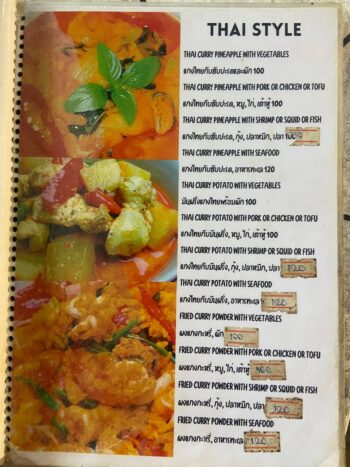 THAI STYLE
THAI CURRY PINEAPPLE WITH VEGETABLES
แกงไทยกับสับปะรดและผัก 100
THAI CURRY PINEAPPLE WITH PORK OR CHICKEN OR TOFU
แกงไทยกับสับปะรด, หมู, ไก่, เต้าหู้ 100
THAI CURRY PINEAPPLE WITH SHRIMP OR SQUID OR FISH
แกงไทยกับสับปะรด, กุ้ง, ปลาหมึก, ปลา
THAI CURRY PINEAPPLE WITH SEAFOOD
แกงไทยกับสับปะรด, อาหารทะเล 120
THAI CURRY POTATO WITH VEGETABLES
มันฝรั่งแกงไทยพร้อมผัก 100
THAI CURRY POTATO WITH PORK OR CHICKEN OR TOFU
แกงไทยกับมันฝรั่ง, หมู, ไก่, เต้าหู้ 100
THAI CURRY POTATO WITH SHRIMP OR SQUID OR FISH
แกงไทยกับมันฝรั่ง, กุ้ง, ปลาหมึก, ปลา 120
THAI CURRY POTATO WITH SEAFOOD
แกงไทยกับมันฝรั่ง, อาหารทะเล 120
FRIED CURRY POWDER WITH VEGETABLES
ผงแกงกะหรี่, ผัก 100
FRIED CURRY POWDER WITH PORK OR CHICKEN OR TOFU
ผงแกงกะหรี่, หมู, ไก่, เต้าหู้ 100
FRIED CURRY POWDER WITH SHRIMP OR SQUID OR FISH
ผงแกงกะหรี่, กุ้ง, ปลาหมึก, ปลา 120
FRIED CURRY POWDER WITH SEAFOOD
ผงแกงกะหรี่, อาหารทะเล 120